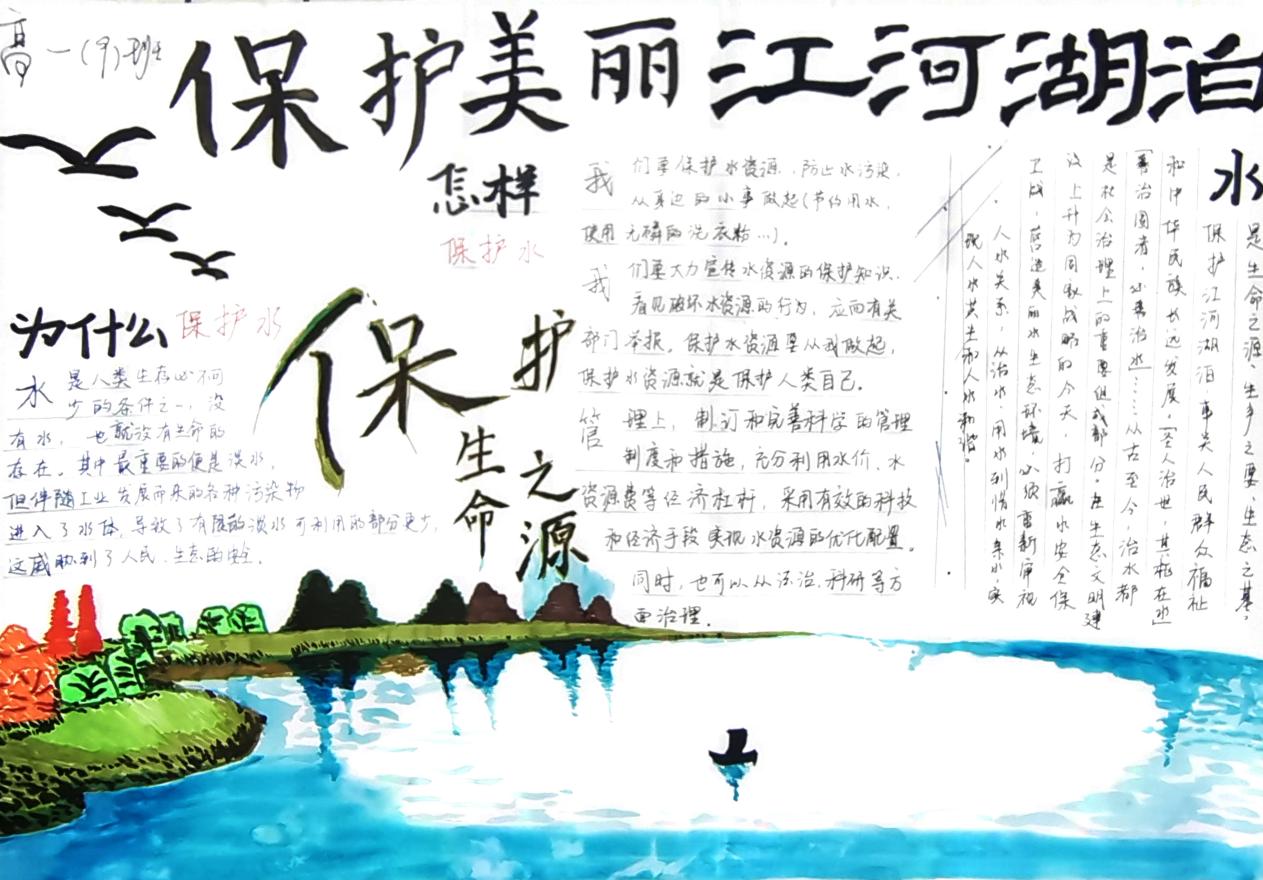 高一(9)班
保护美丽江河湖泊
怎样
保护水
我们要保护水资源、防止水污染,
从身边的小事做起(节约用水,
使用无磷的洗衣粉…)。
我们要大力宣传水资源的保护知识,
看见破坏水资源的行为,应向有关
部门举报。保护水资源要从我做起,
保护水资源就是保护人类自己。
管理上,制订和完善科学的管理
制度和措施,充分利用水价、水
资源费等经济杠杆,采用有效的科技
和经济手段实现水资源的优化配置。
同时,也可以从法治、科研等方
面治理。
水
是生命之源、生产之要、生态之基,
保护江河湖泊事关人民群众福祉
和中华民族长远发展,「圣人治世,其枢在水」
「善治国者,必善治水」……从古至今,治水都
是社会治理上的重要组成部分。在生态文明建
设上升为国家战略的今天,打赢水安全保
卫战,营造美丽水生态环境,必须重新审视
人水关系,从治水、用水到惜水、亲水,实
现人水共生和人水和谐。
为什么保护水
水是人类生存必不可
少的条件之一,没
有水,也就没有生命的
存在。其中最重要的便是淡水,
但伴随工业发展而来的各种污染物
进入了水体,导致了有限的淡水可利用的部分更少,
这威胁到了人民、生态的安全。
保护
生命
之源